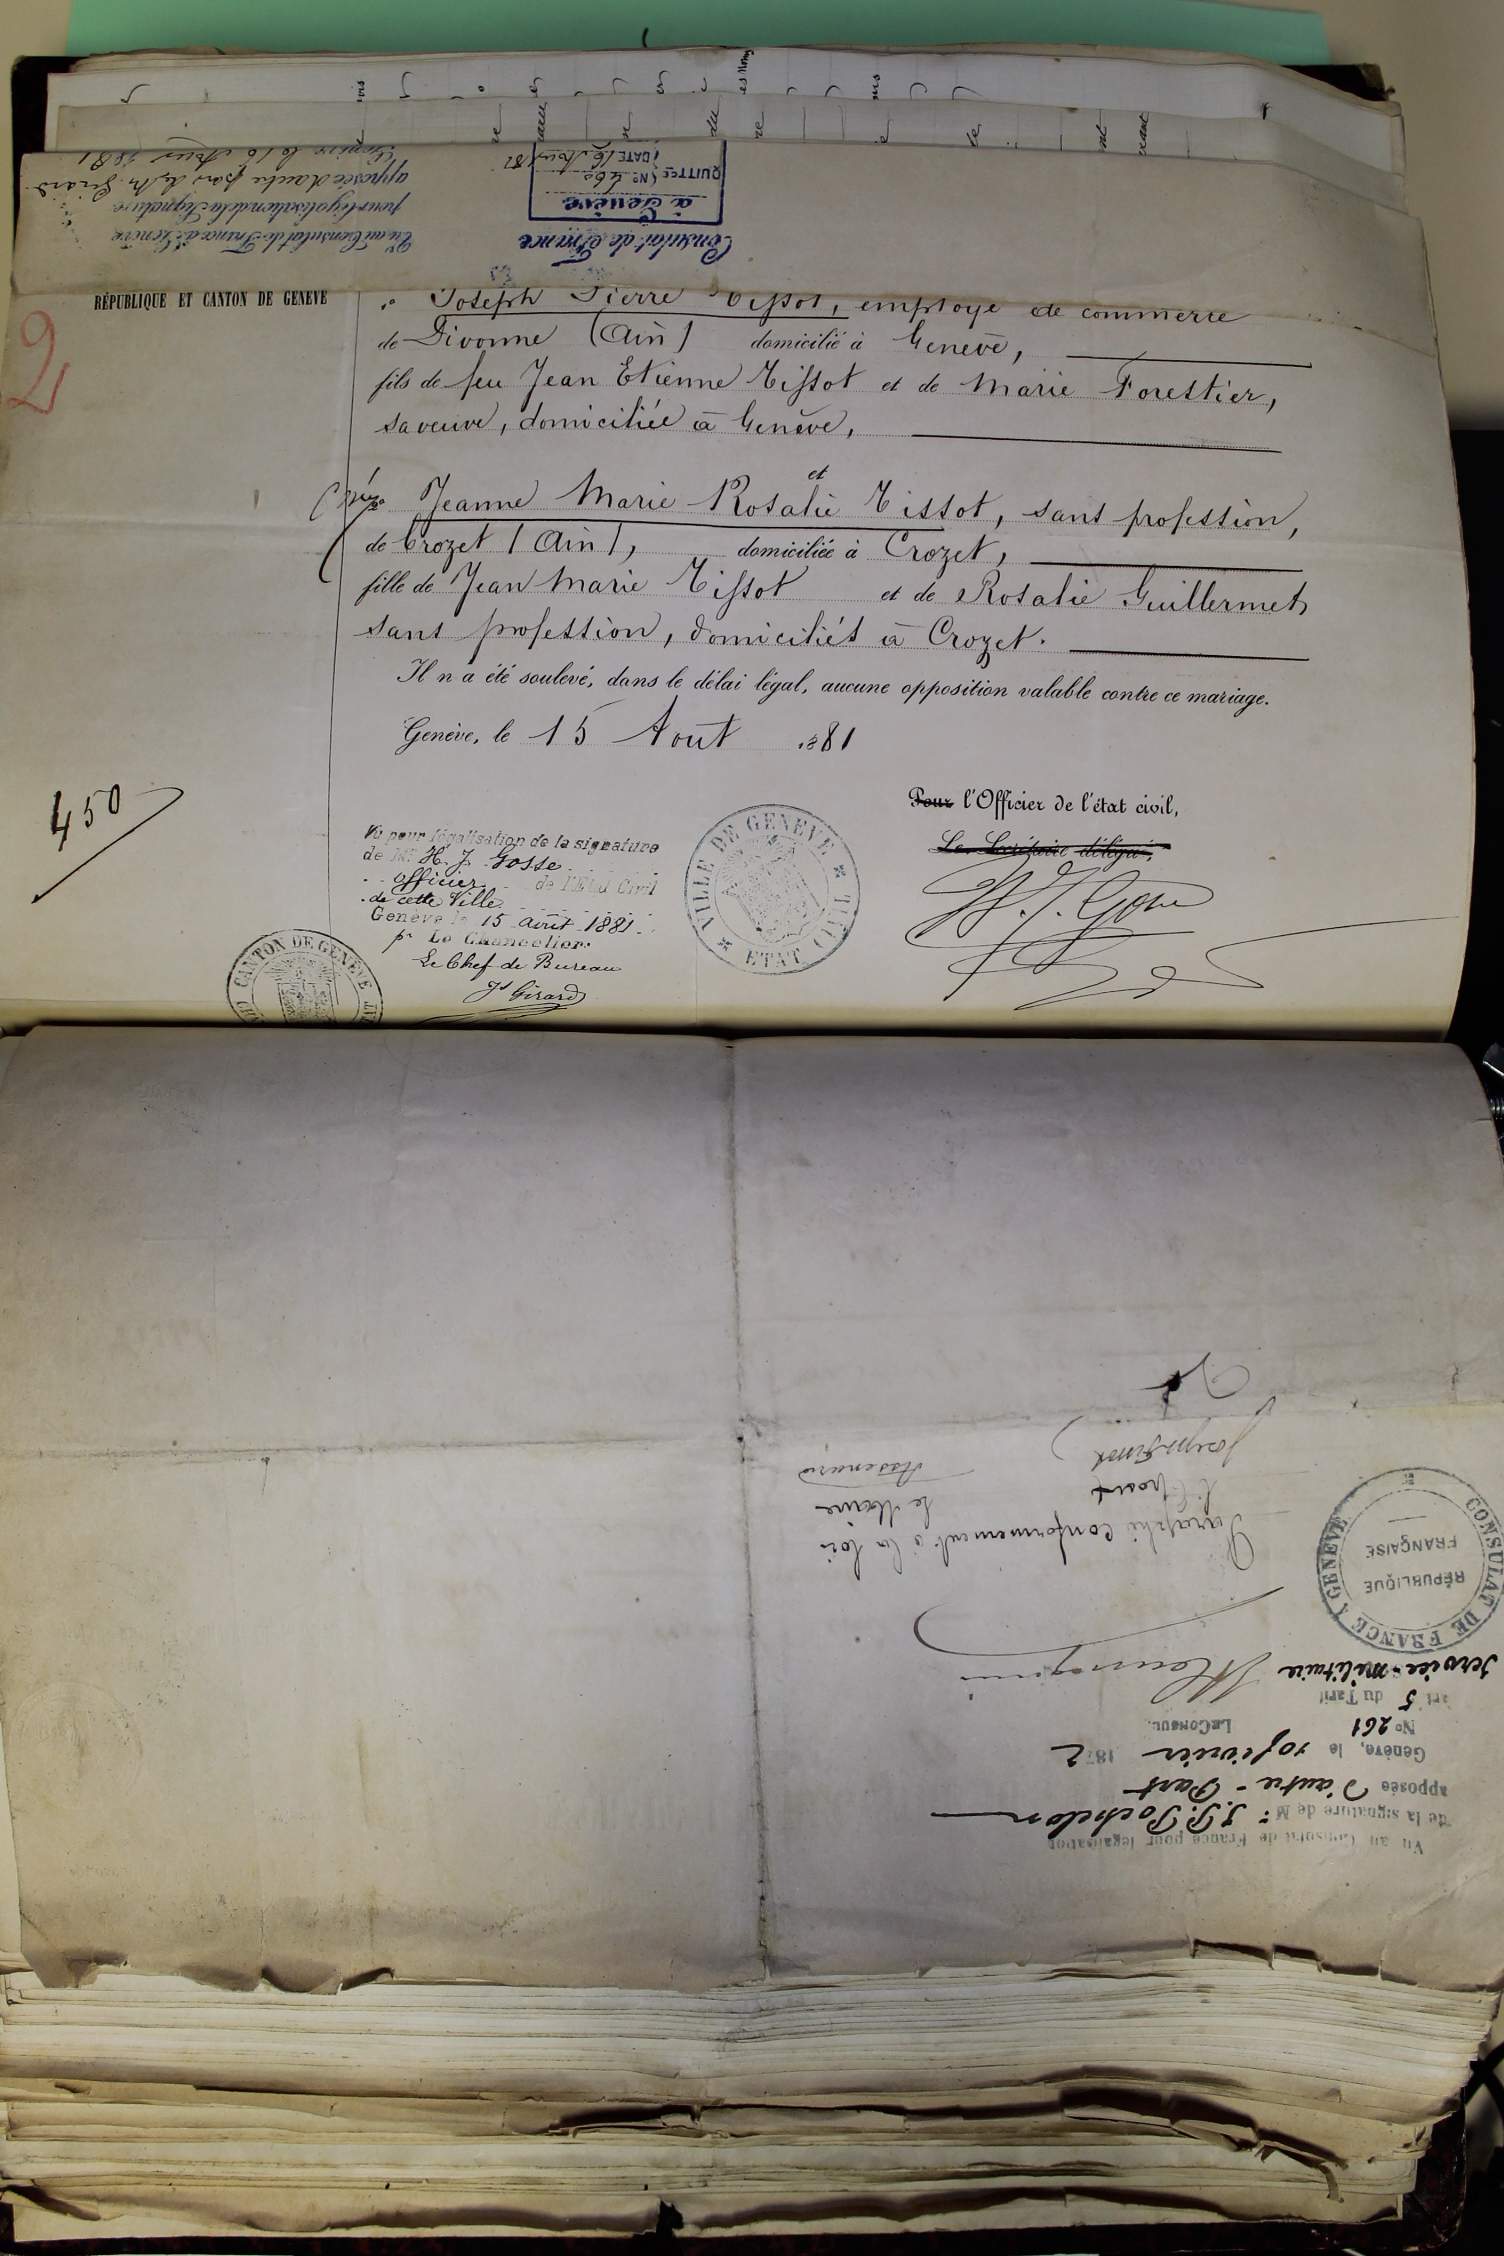 Vu au Consulat de France à Genève
pour légalisation de la signature
apposée d'autre part de Mr Girard
Genève le 16 Août 1881
Consulat de France
à Genève
QUITTCE Nº 460
DATE 16 Août 81
RÉPUBLIQUE ET CANTON DE GENÈVE
2
Joseph Pierre Tissot, employé de commerce
de Divonne (Ain) domicilié à Genève,
fils de feu Jean Etienne Tissot et de Marie Forestier,
sa veuve, domiciliée à Genève,
et
Jeanne Marie Rosalie Tissot, sans profession,
de Crozet (Ain), domiciliée à Crozet,
fille de Jean Marie Tissot et de Rosalie Guillermet,
sans profession, domiciliés à Crozet.
Il n'a été soulevé, dans le délai légal, aucune opposition valable contre ce mariage.
Genève, le 15 Août 1881
450
Pour l'Officier de l'état civil,
Le Secrétaire délégué,
H. J. Gosse
Vu pour légalisation de la signature
de Mr H. J. Gosse
officier de l'Etat Civil
de cette Ville
Genève le 15 août 1881
pr Le Chancelier.
Le Chef de Bureau
Js Girard
VILLE DE GENÈVE
ETAT CIVIL
CANTON DE GENÈVE
Vu au Consulat de France pour légalisation
de la signature de Mr J. P. Pochelon
apposée d'autre-Part
Genève, le 10 février 1872
Nº 261 Le Consul
art 5 du Tarif
Service-Militaire
CONSULAT DE FRANCE A GENÈVE
RÉPUBLIQUE
FRANÇAISE
Paraphé conformément à la loi
L'Epoux
Le Maire
Joseph Tissot